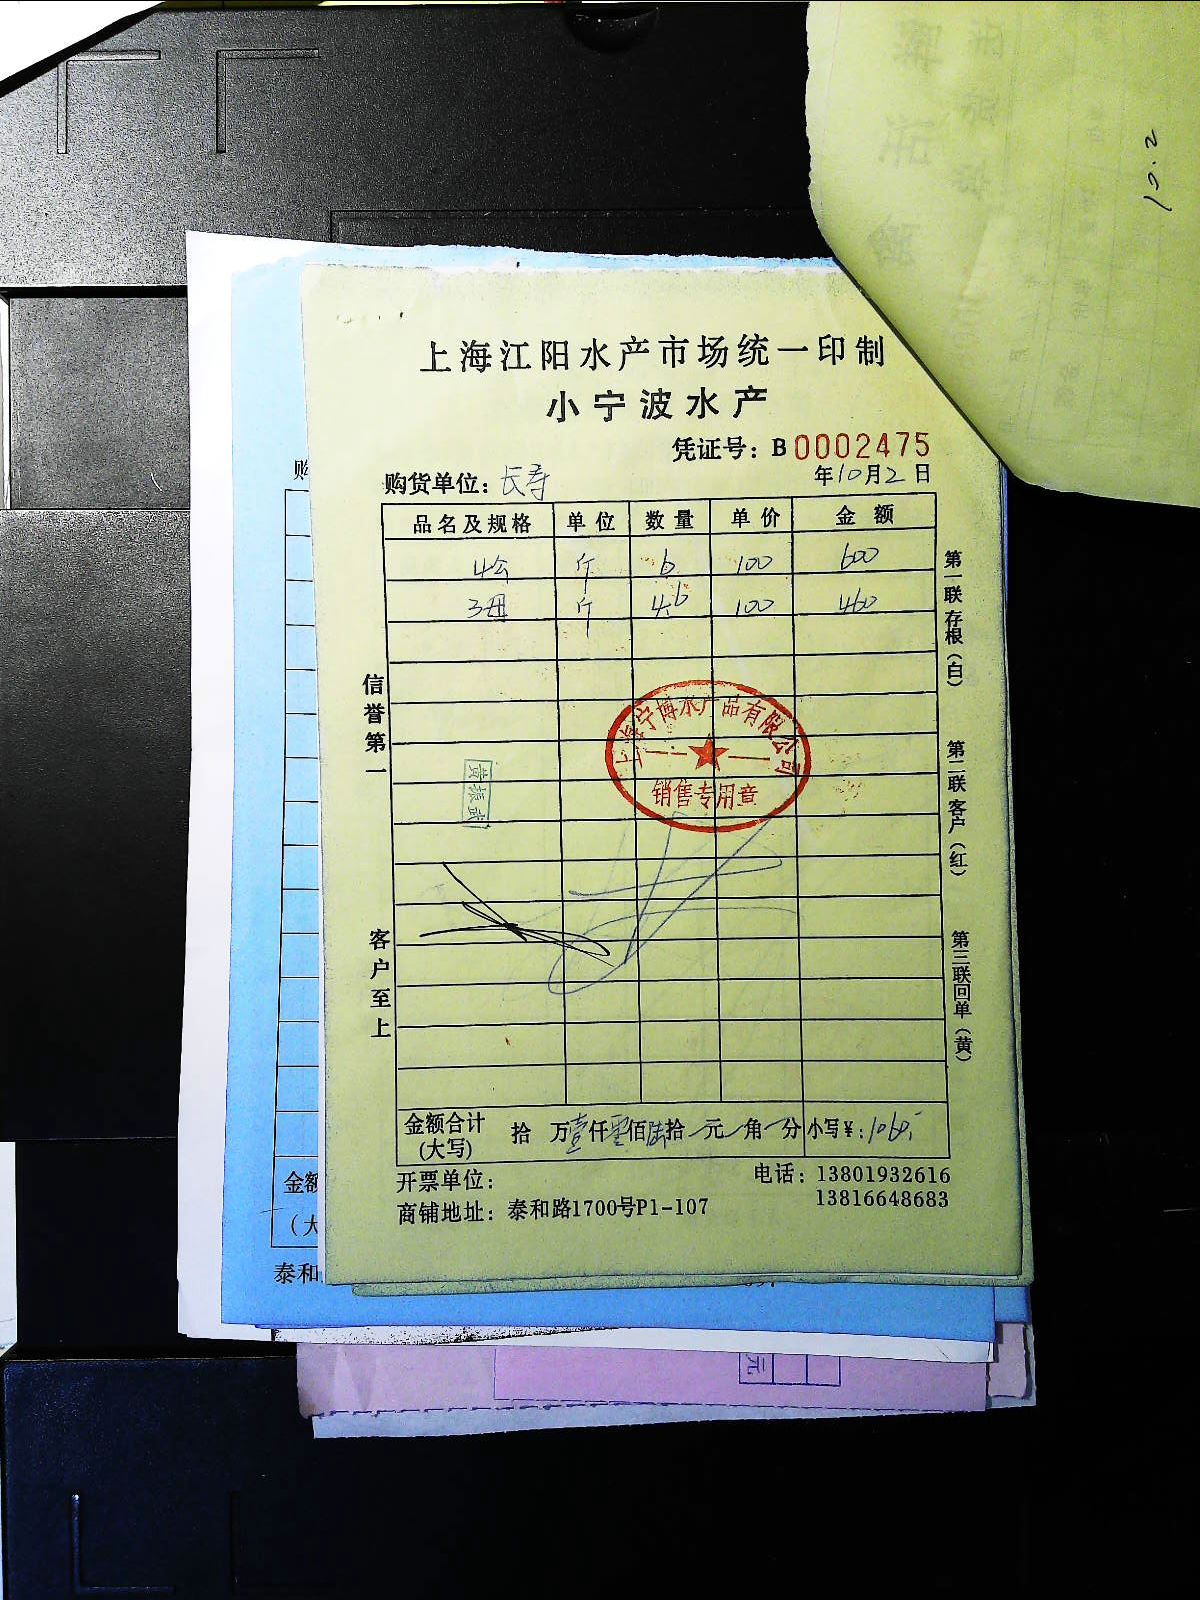 10.2
上海江阳水产市场统一印制
小宁波水产
凭证号：B0002475
购货单位：长寿 年10月2日
品名及规格 单位 数量 单价 金额
4公 斤 6 100 600
3母 斤 4.6 100 460
信誉第一
客户至上
第一联存根（白）
第二联客户（红）
第三联回单（黄）
上海宁博水产品有限公司
销售专用章
黄振武
金额合计（大写） 拾 万壹仟零佰陆拾 元 角 分 小写￥：1060.
开票单位：
电话：13801932616
13816648683
商铺地址：泰和路1700号P1-107
购
金额
（大
泰和
元